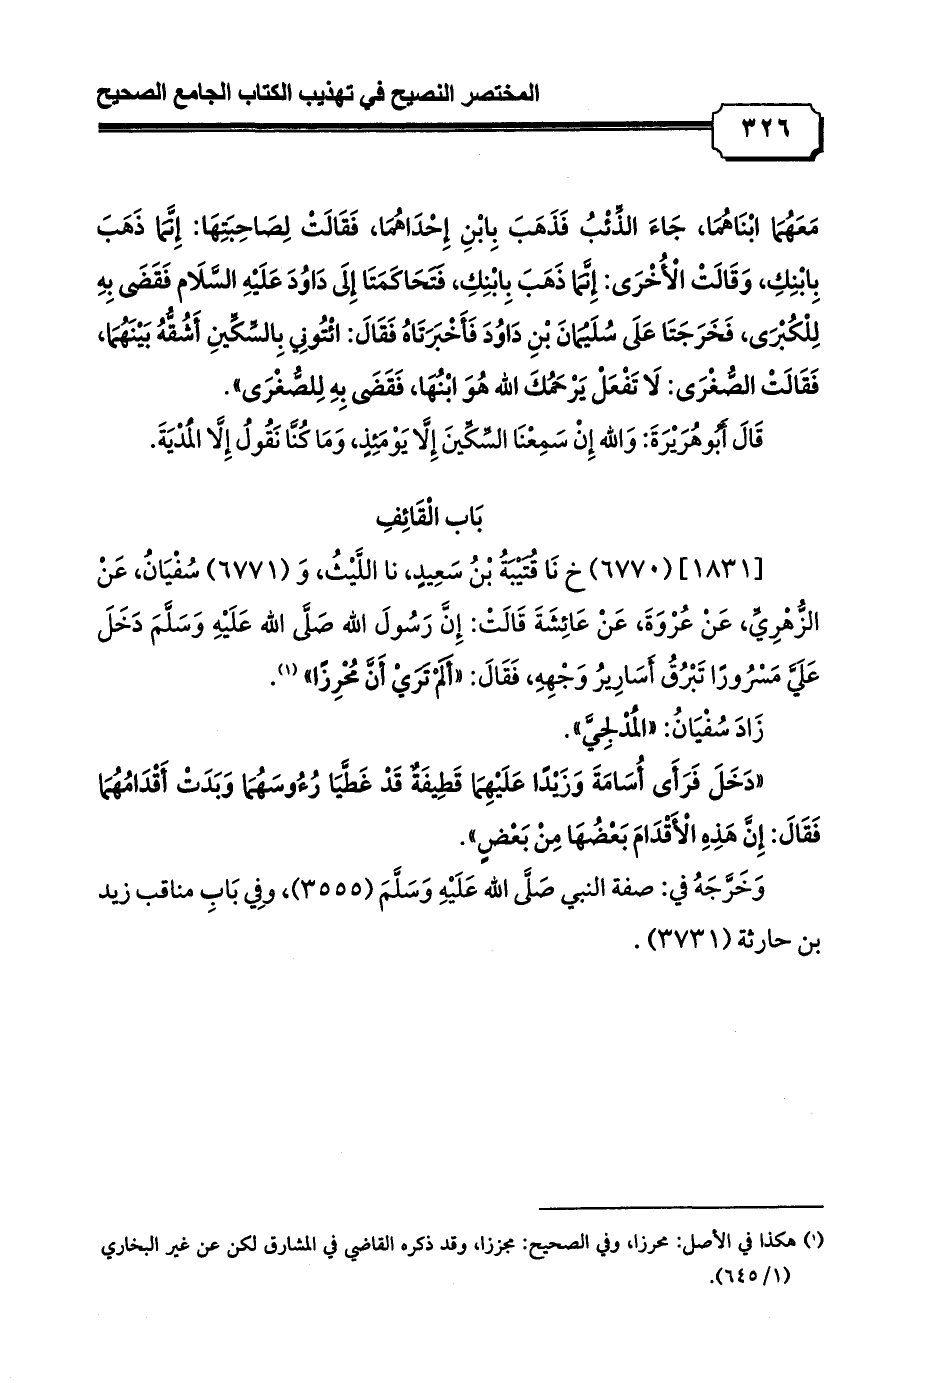 المختصر النصيح في تهذيب الكتاب الجامع الصحيح
٣٢٦
مَعَهُمَا ابْنَاهُمَا، جَاءَ الذِّئْبُ فَذَهَبَ بِابْنِ إِحْدَاهُمَا، فَقَالَتْ لِصَاحِبَتِهَا: إِنَّمَا ذَهَبَ
بِابْنِكِ، وَقَالَتْ الْأُخْرَى: إِنَّمَا ذَهَبَ بِابْنِكِ، فَتَحَاكَمَتَا إِلَى دَاوُدَ عَلَيْهِ السَّلَام فَقَضَى بِهِ
لِلْكُبْرَى، فَخَرَجَتَا عَلَى سُلَيْمَانَ بْنِ دَاوُدَ فَأَخْبَرَتَاهُ فَقَالَ: ائْتُونِي بِالسِّكِّينِ أَشُقُّهُ بَيْنَهُمَا،
فَقَالَتْ الصُّغْرَى: لَا تَفْعَلْ يَرْحَمُكَ الله هُوَ ابْنُهَا، فَقَضَى بِهِ لِلصُّغْرَى».
قَالَ أَبُو هُرَيْرَةَ: وَالله إِنْ سَمِعْنَا السِّكِّينَ إِلَّا يَوْمَئِذٍ، وَمَا كُنَّا نَقُولُ إِلَّا الْمُدْيَةَ.
بَاب الْقَائِفِ
[١٨٣١] (٦٧٧٠) خ نَا قُتَيْبَةُ بْنُ سَعِيدٍ، نا اللَّيْثُ، وَ (٦٧٧١) سُفْيَانُ، عَنْ
الزُّهْرِيِّ، عَنْ عُرْوَةَ، عَنْ عَائِشَةَ قَالَتْ: إِنَّ رَسُولَ الله صَلَّى الله عَلَيْهِ وَسَلَّمَ دَخَلَ
عَلَيَّ مَسْرُورًا تَبْرُقُ أَسَارِيرُ وَجْهِهِ، فَقَالَ: «أَلَمْ تَرَيْ أَنَّ مُحْرِزًا» (١).
زَادَ سُفْيَانُ: «الْمُدْلِجِيَّ».
«دَخَلَ فَرَأَى أُسَامَةَ وَزَيْدًا عَلَيْهِمَا قَطِيفَةٌ قَدْ غَطَّيَا رُءُوسَهُمَا وَبَدَتْ أَقْدَامُهُمَا
فَقَالَ: إِنَّ هَذِهِ الْأَقْدَامَ بَعْضُهَا مِنْ بَعْضٍ».
وَخَرَّجَهُ فِي: صفة النبي صَلَّى الله عَلَيْهِ وَسَلَّمَ (٣٥٥٥)، وفِي بَابِ مناقب زيد
بن حارثة (٣٧٣١) .
(١) هكذا في الأصل: محرزا، وفي الصحيح: مجززا، وقد ذكره القاضي في المشارق لكن عن غير البخاري
(١/ ٦٤٥).